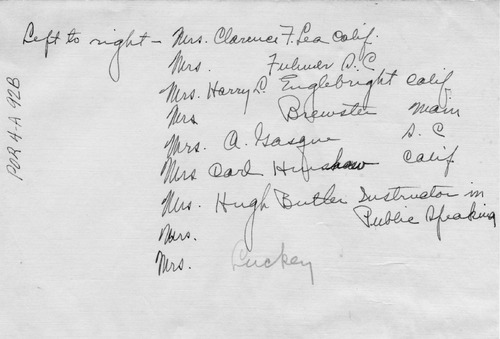 Left to right - Mrs. Clarence F. Lea Calif.
Mrs. Fulmer S.C
Mrs. Harry L Englebright Calif
Mrs Brewster Main
Mrs. A. Gasque S.C
Mrs Carl Hinshaw Calif
Mrs. Hugh Butler Instructor in
Public Speaking
Mrs.
Mrs. Luckey
POR 4-A 92B